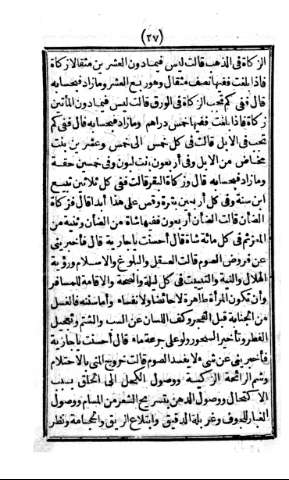 (٢٧)
الزكاة فى الذهب قالت ليس فيما دون العشرين مثقالا زكاة
فاذا بلغت ففيها نصف مثقال وهو ربع العشر وما زاد فبحسابه
قال ففى كم تجب الزكاة فى الورق قالت ليس فيما دون المأتين
زكاة فاذا بلغت ففيها خمس دراهم وما زاد فبحسابه قال ففى كم
تجب فى الابل قالت فى كل خمس الى خمس وعشرين بنت
مخاض من الابل وفى أربعون بنت لبون وفى خمسين حقة
وما زاد فبحسابه قال وزكاة البقر قالت ففى كل ثلاثين تبيع
ابن سنة وفى كل أربعين بقرة وقس على هذا أبدا قال فزكاة
الضأن قالت الضأن أربعون ففيها شاة من الضأن وثنية من
المعز ثم فى كل مائة شاة قال أحسنت يا جارية قال فأخبرينى
عن فروض الصوم قالت العقل والبلوغ والاسلام ورؤية
الهلال والنية والتبييت فى كل ليلة والصحة والاقامة للمسافر
وأن تكون المرأة طاهرة لا حائضا ولا نفساء وأما سننه فالغسل
من الجنابة قبل الفجر وكف اللسان عن السب والشتم وتعجيل
الفطر وتأخير السحور ولو على جرعة ماء قال أحسنت يا جارية
فأخبرينى عن شىء لا يفسد الصوم قالت خروج المنى بالاحتلام
وشم الرائحة الزكية ووصول الكحل الى الحلق بسبب
الاكتحال ووصول الدهن بتسريح الشعر من المسام ووصول
الغبار للجوف وغربلة الدقيق وابتلاع الريق والحجامة ونظر